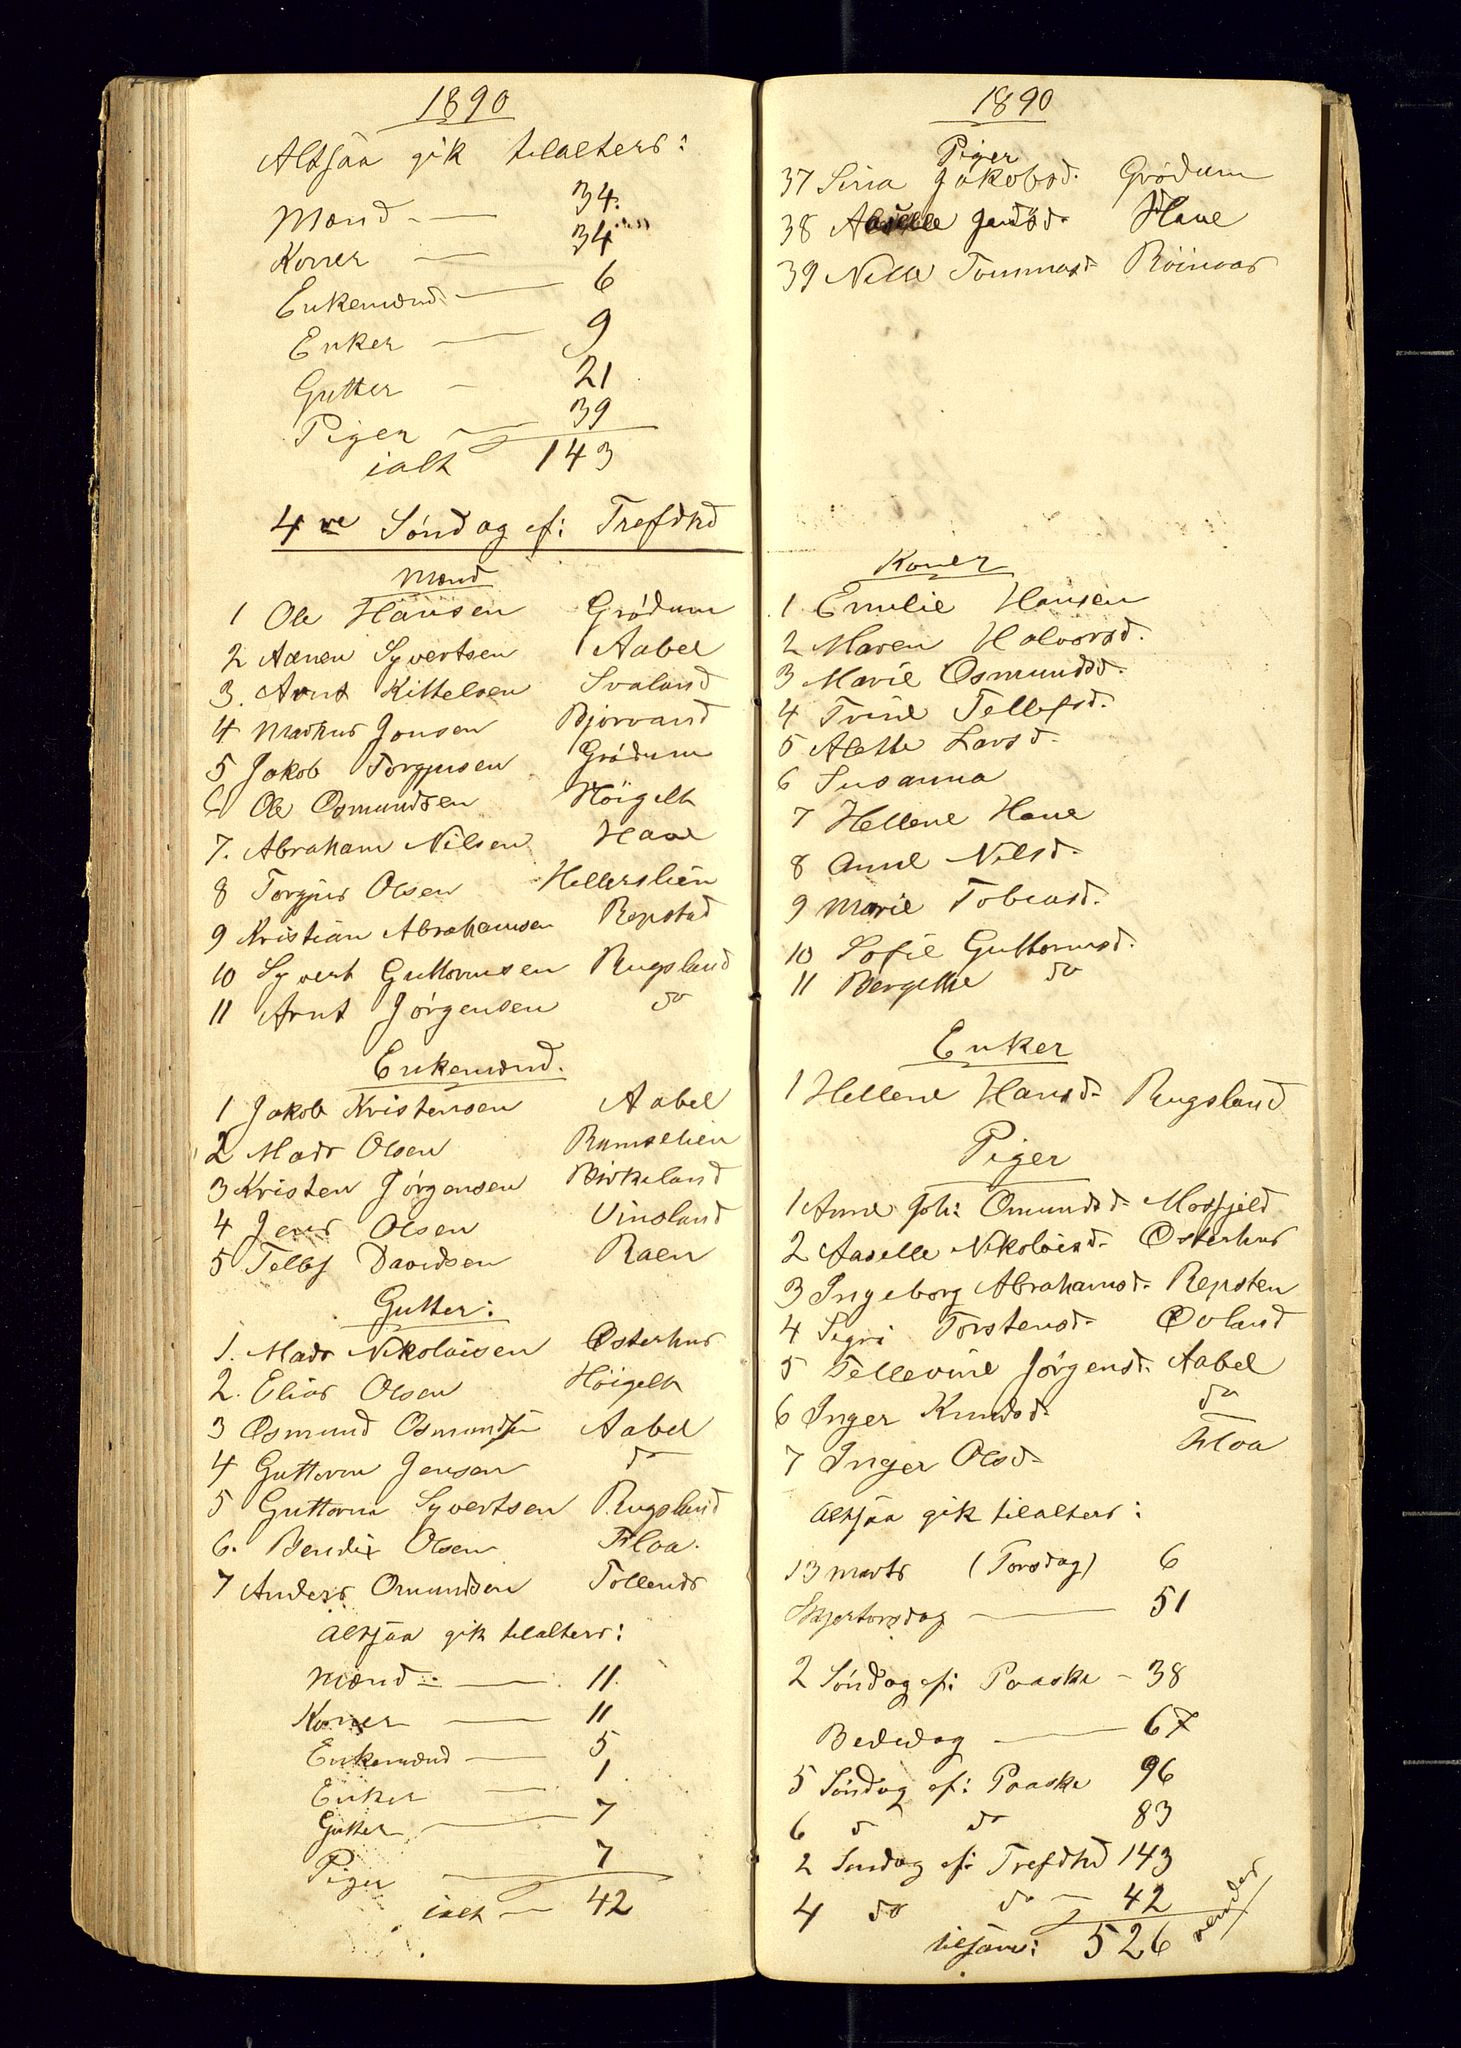 1890
Altsaa gik tilalters:
Mænd — 34.
Koner — 34
Enkemænd — 6
Enker — 9
Gutter — 21
Piger — 39
ialt 143
4de Søndag ef: Trefdhd
Mænd
1 Ole Hansen Grødum
2 Aanen Syvertsen Aabel
3. Arnt Kittelsen Svaland
4 Markus Jensen Bjorvand
5 Jakob Torgjusen Grødum
6 Ole Osmundsen Höigelt
7. Abraham Nilsen Have
8 Torgjus Olsen Hellerslien
9 Kristian Abrahamsen Repstad
10 Syvert Guttormsen Rugsland
11 Arnt Jørgensen do
Enkemænd.
1 Jakob Kristensen Aabel
2 Mads Olsen Ramselien
3 Kristen Jörgensen Birkeland
4 Jens Olsen Vinsland
5 Tellef Davidsen Raen
Gutter:
1. Mads Nikolaisen Østerhus
2. Elias Olsen Höigelt
3 Osmund Osmundsen Aabel
4 Guttorm Jensen do
5 Guttorm Syvertsen Rugsland
6. Bendix Olsen Floa.
7 Anders Omundsen Tollends
Altsaa gik tilalters:
Mænd — 11.
Koner — 11
Enkemænd — 5
Enker — 1
Gutter — 7
Piger — 7
ialt — 42
1890
Piger
37 Sina Jakobsd. Grødum
38 Have
39 Nille Tommasd. Röinaas
Koner
1. Emilie Hansen
2 Maren Halvorsd.
3 Marie Osmundsd.
4 Trine Tellefsd.
5 Alette Larsd.
6 Susanna
7 Hellene Have
8 Anne Nilsd.
9 Marie Tobiasd.
10 Sofie Guttormsd.
11 Bergitte do
Enker
1 Hellene Hansd. Rugsland
Piger
1 Anne Joh: Omundsd. Mosfjeld
2 Aaselle Nikolaisd. Østerhus
3 Ingeborg Abrahamsd. Repsten
4 Sigri Torstensd. Øvland
5 Tellevine Jørgensd. Aabel
6 Inger Knudsd. do
7 Inger Olsd. Floa
Altsaa gik tilalters:
13 marts (Torsdag) 6
Skjertorsdag — 51
2 Søndag ef: Paaske — 38
Bededag — 67
5 Søndag ef: Paaske 96
6 do do 83
2 Søndag ef: Trefdhd 143
4 do do — 42
tilsam: 526
vender